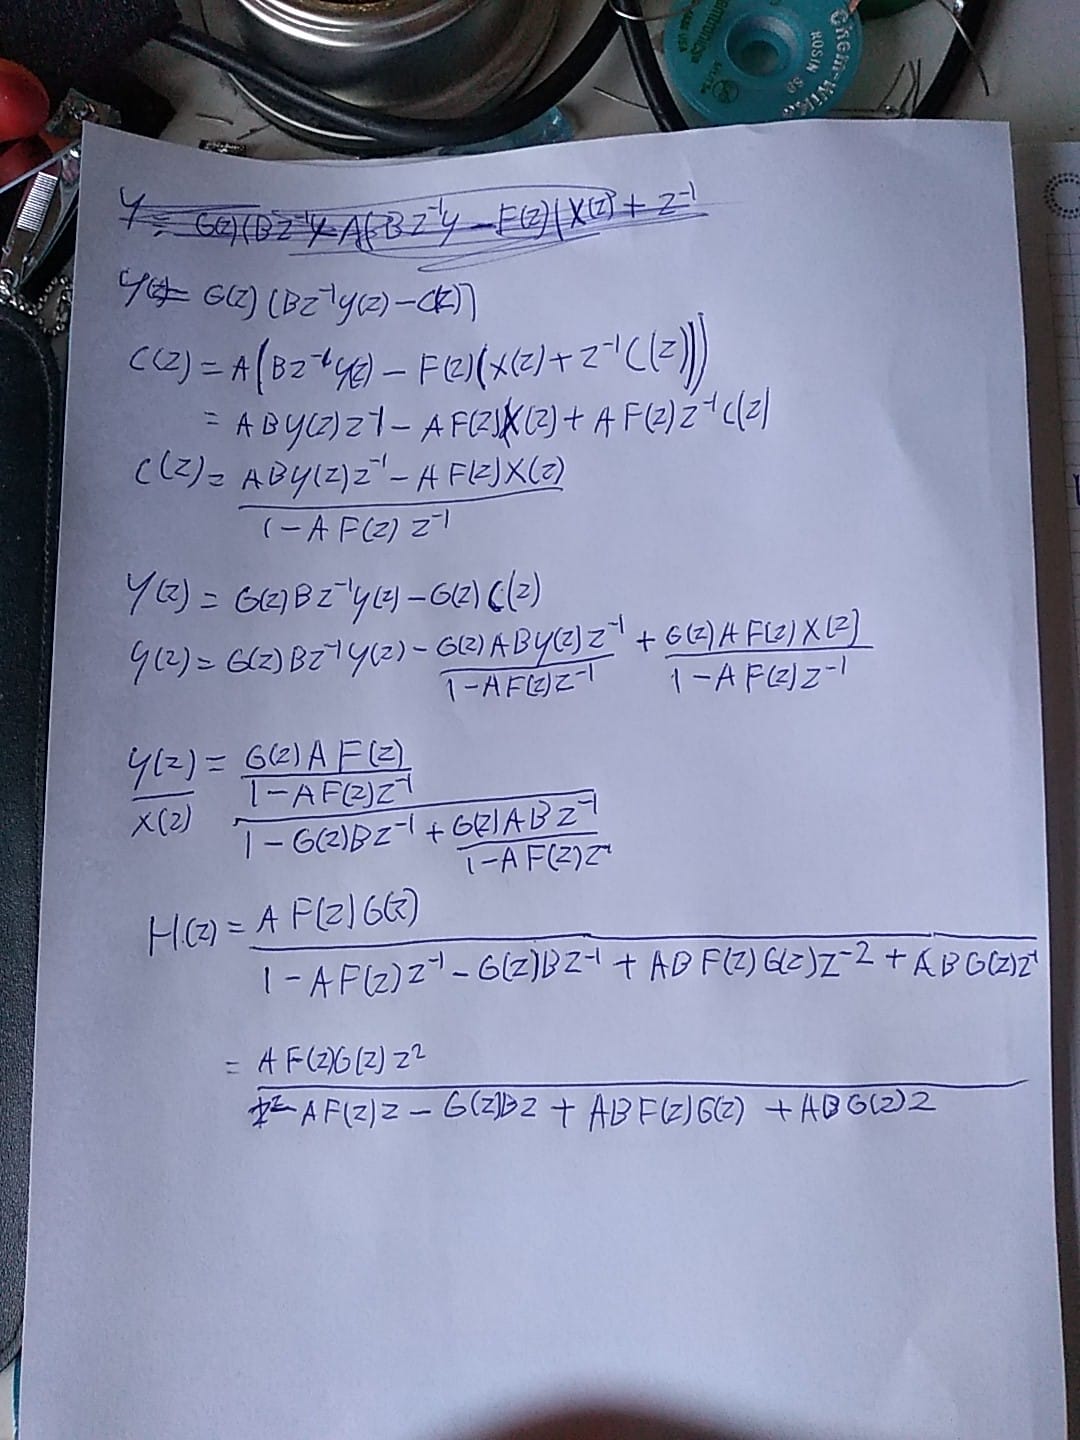 ROSIN SO
Y = G(z)(Bz⁻¹Y - A(Bz⁻¹Y - F(z)(X(z) + z⁻¹
Y(z) = G(z)(Bz⁻¹Y(z) - C(z))
C(z) = A(Bz⁻¹Y(z) - F(z)(X(z) + z⁻¹C(z)))
= ABY(z)z⁻¹ - AF(z)X(z) + AF(z)z⁻¹C(z)
C(z) = ABY(z)z⁻¹ - AF(z)X(z)
1 - AF(z)z⁻¹
Y(z) = G(z)Bz⁻¹Y(z) - G(z)C(z)
Y(z) = G(z)Bz⁻¹Y(z) - G(z)ABY(z)z⁻¹ + G(z)AF(z)X(z)
1 - AF(z)z⁻¹ 1 - AF(z)z⁻¹
Y(z) = G(z)AF(z)
1 - AF(z)z⁻¹
X(z) 1 - G(z)Bz⁻¹ + G(z)ABz⁻¹
1 - AF(z)z⁻¹
H(z) = AF(z)G(z)
1 - AF(z)z⁻¹ - G(z)Bz⁻¹ + ABF(z)G(z)z⁻² + ABG(z)z⁻¹
= AF(z)G(z)z²
z² - AF(z)z - G(z)Bz + ABF(z)G(z) + ABG(z)z